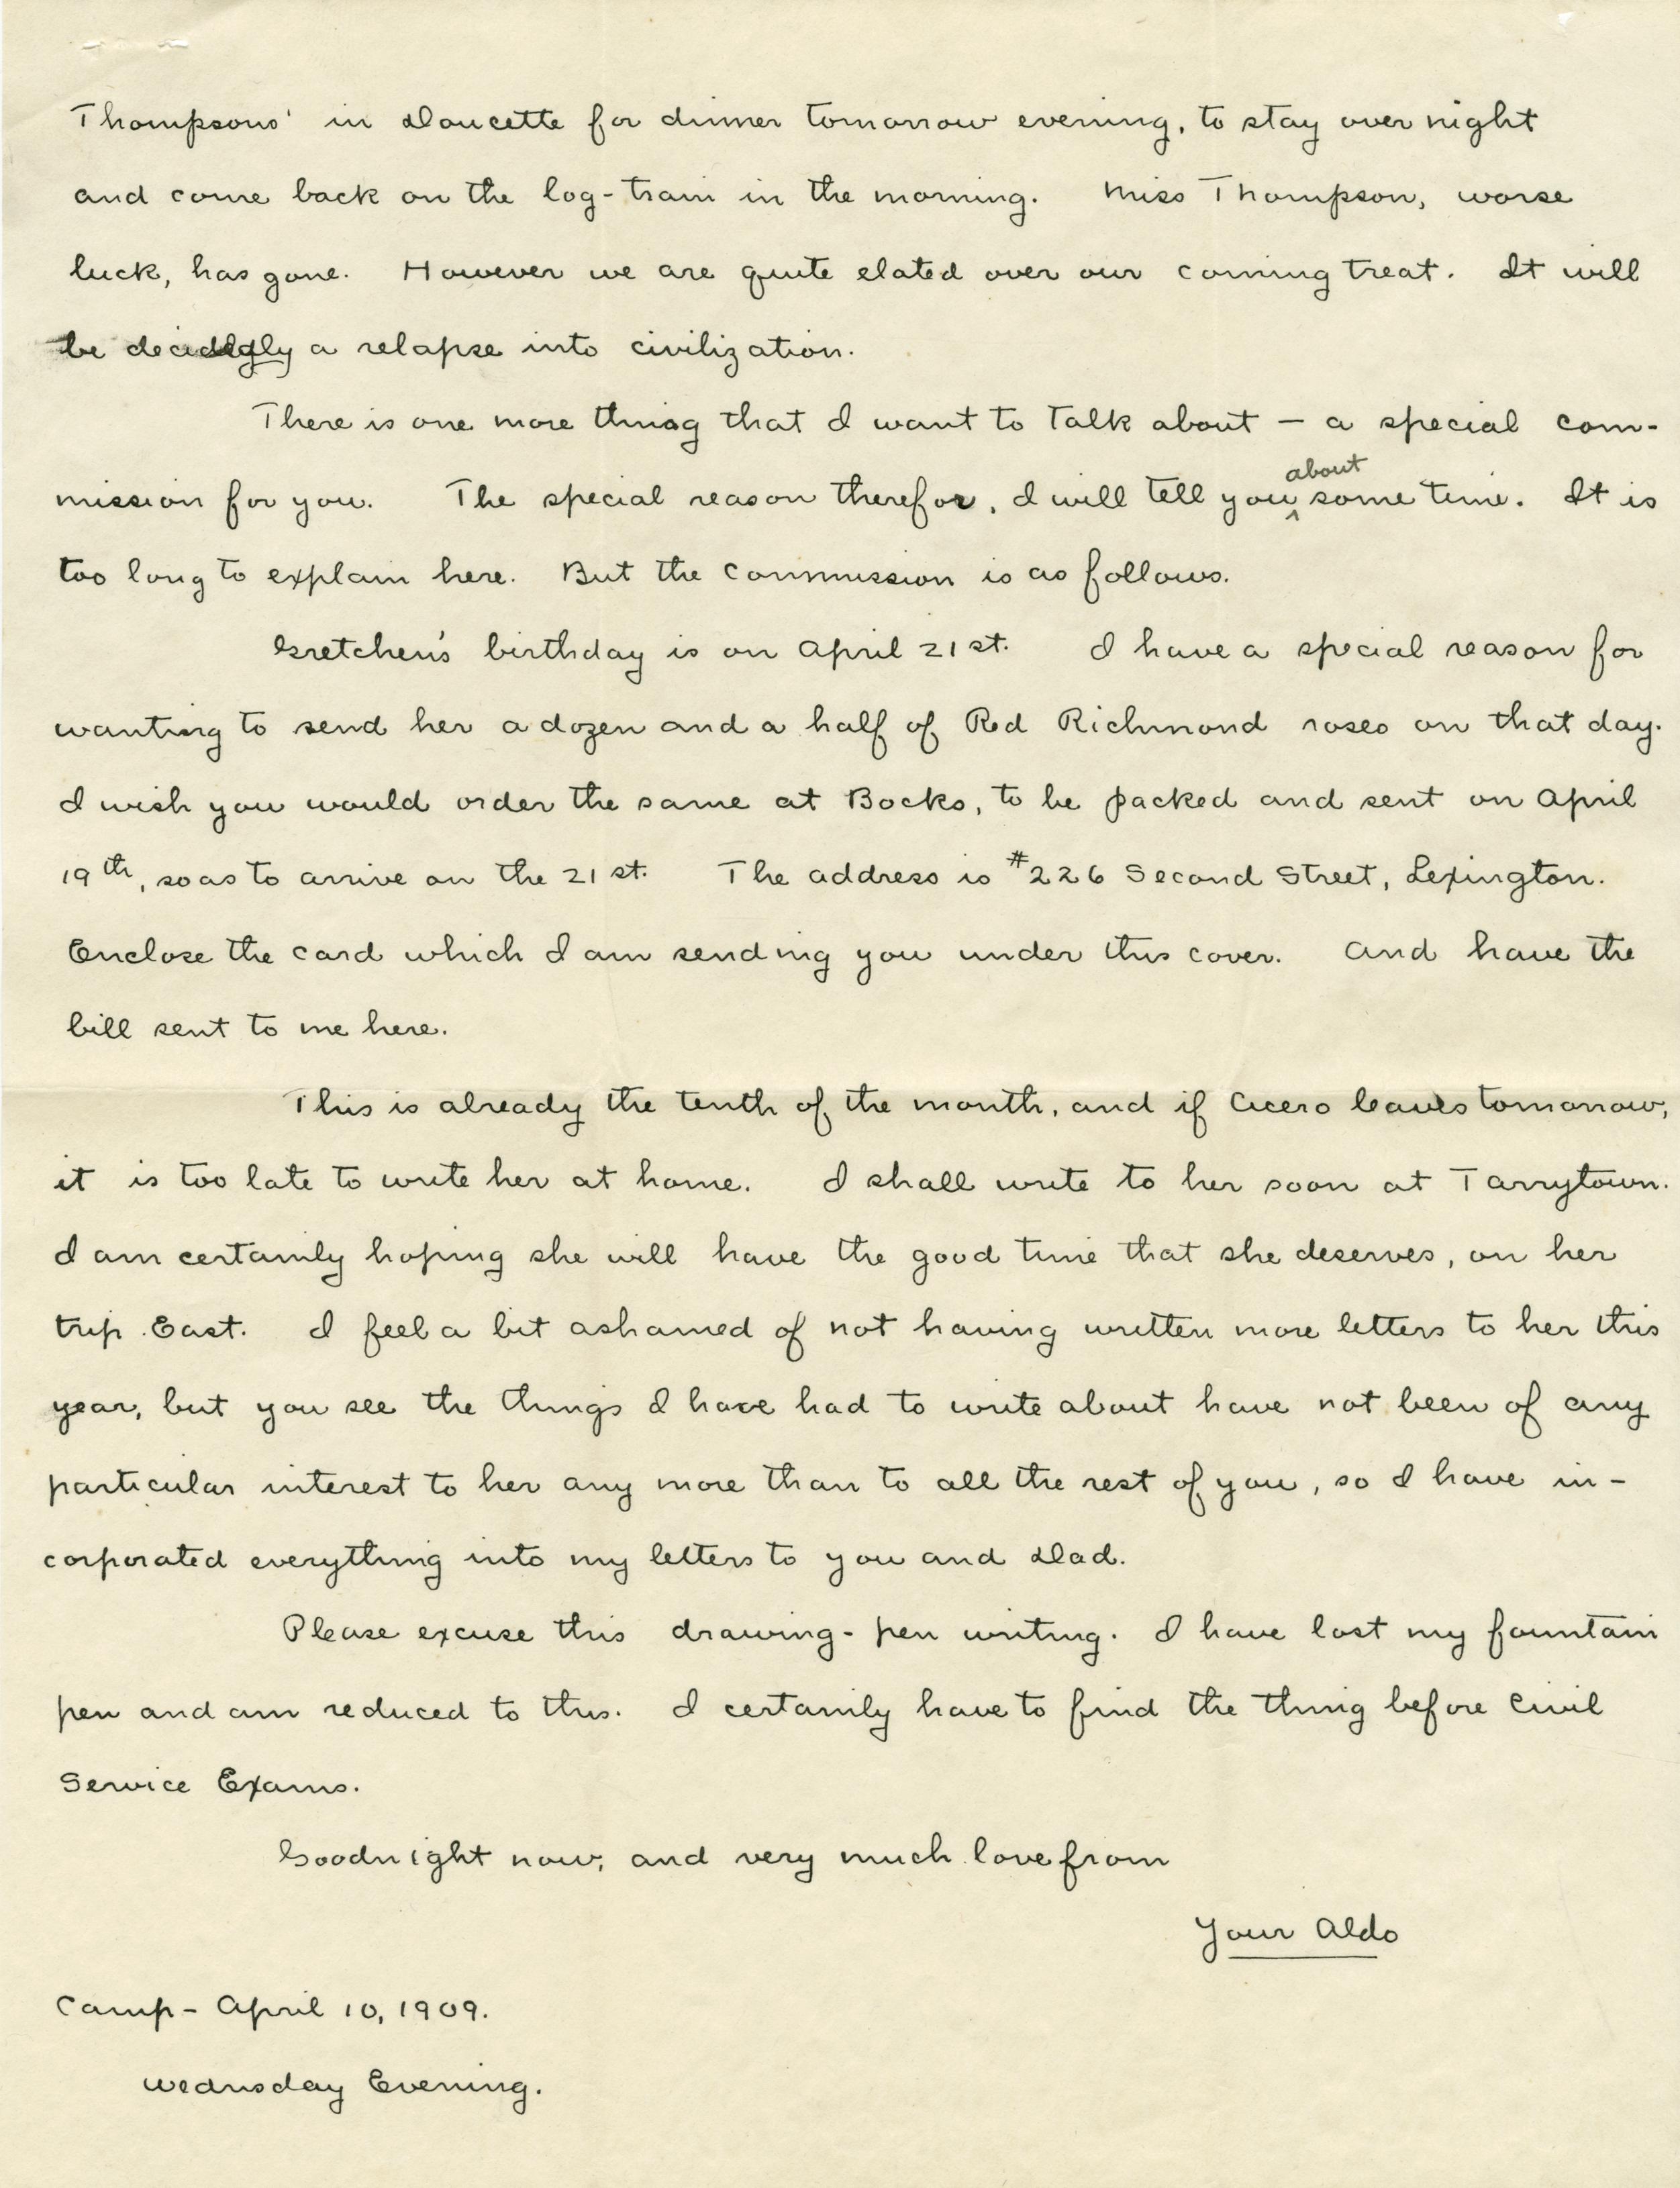 Thompsons' in Doucette for dinner tomorrow evening, to stay over night
and come back on the log-train in the morning. Miss Thompson, worse
luck, has gone. However we are quite elated over our coming treat. It will
be a relapse into civilization.
There is one more thing that I want to talk about — a special com-
mission for you. The special reason therefor, I will tell you about some time. It is
too long to explain here. But the Commission is as follows.
Gretchen's birthday is on April 21st. I have a special reason for
wanting to send her a dozen and a half of Red Richmond roses on that day.
I wish you would order the same at Bocks, to be packed and sent on April
19th, so as to arrive on the 21st. The address is #226 Second Street, Lexington.
Enclose the card which I am sending you under this cover. And have the
bill sent to me here.
This is already the tenth of the month, and if Cicero leaves tomorrow,
it is too late to write her at home. I shall write to her soon at Tarrytown.
I am certainly hoping she will have the good time that she deserves, on her
trip East. I feel a bit ashamed of not having written more letters to her this
year, but you see the things I have had to write about have not been of any
particular interest to her any more than to all the rest of you, so I have in-
corporated everything into my letters to you and Dad.
Please excuse this drawing-pen writing. I have lost my fountain
pen and am reduced to this. I certainly have to find the thing before Civil
Service Exams.
Goodnight now, and very much love from
Your Aldo
Camp - April 10, 1909.
Wednsday Evening.